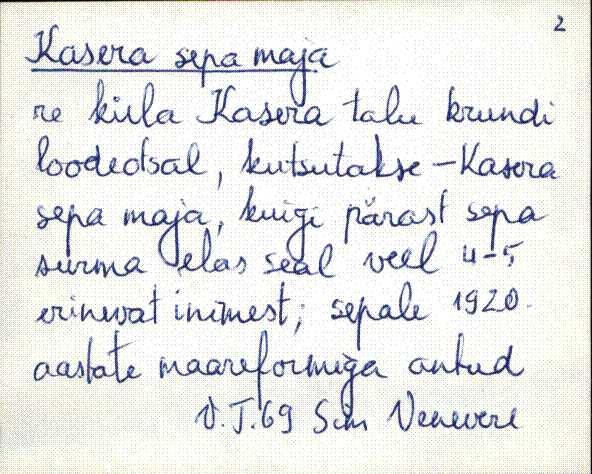 2
Kasera sepa maja
re küla Kasera talu krundi
loodeotsal, kutsutakse – Kasera
sepa maja, kuigi pärast sepa
surma elas seal veel 4-5
erinevat inimest; sepale 1920.
aastate maareformiga antud
V.J.69 Sim Venevere